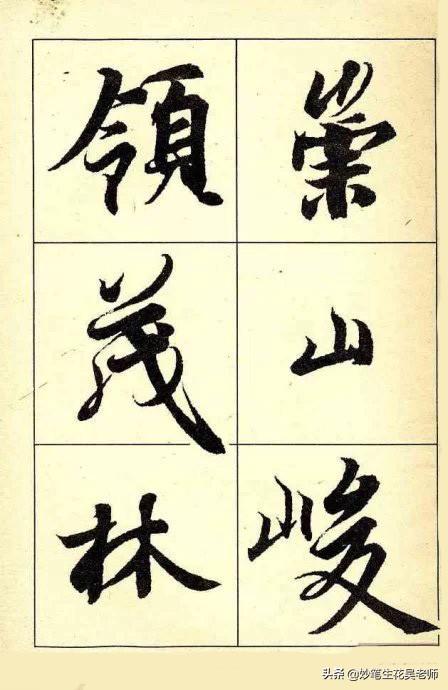 崇山峻
領茂林
头条 @妙笔生花吴老师